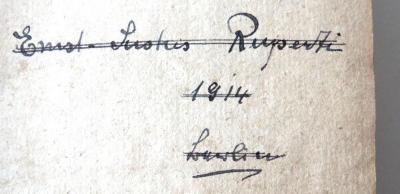 Ernst-Justus Ruperti
1914
Berlin